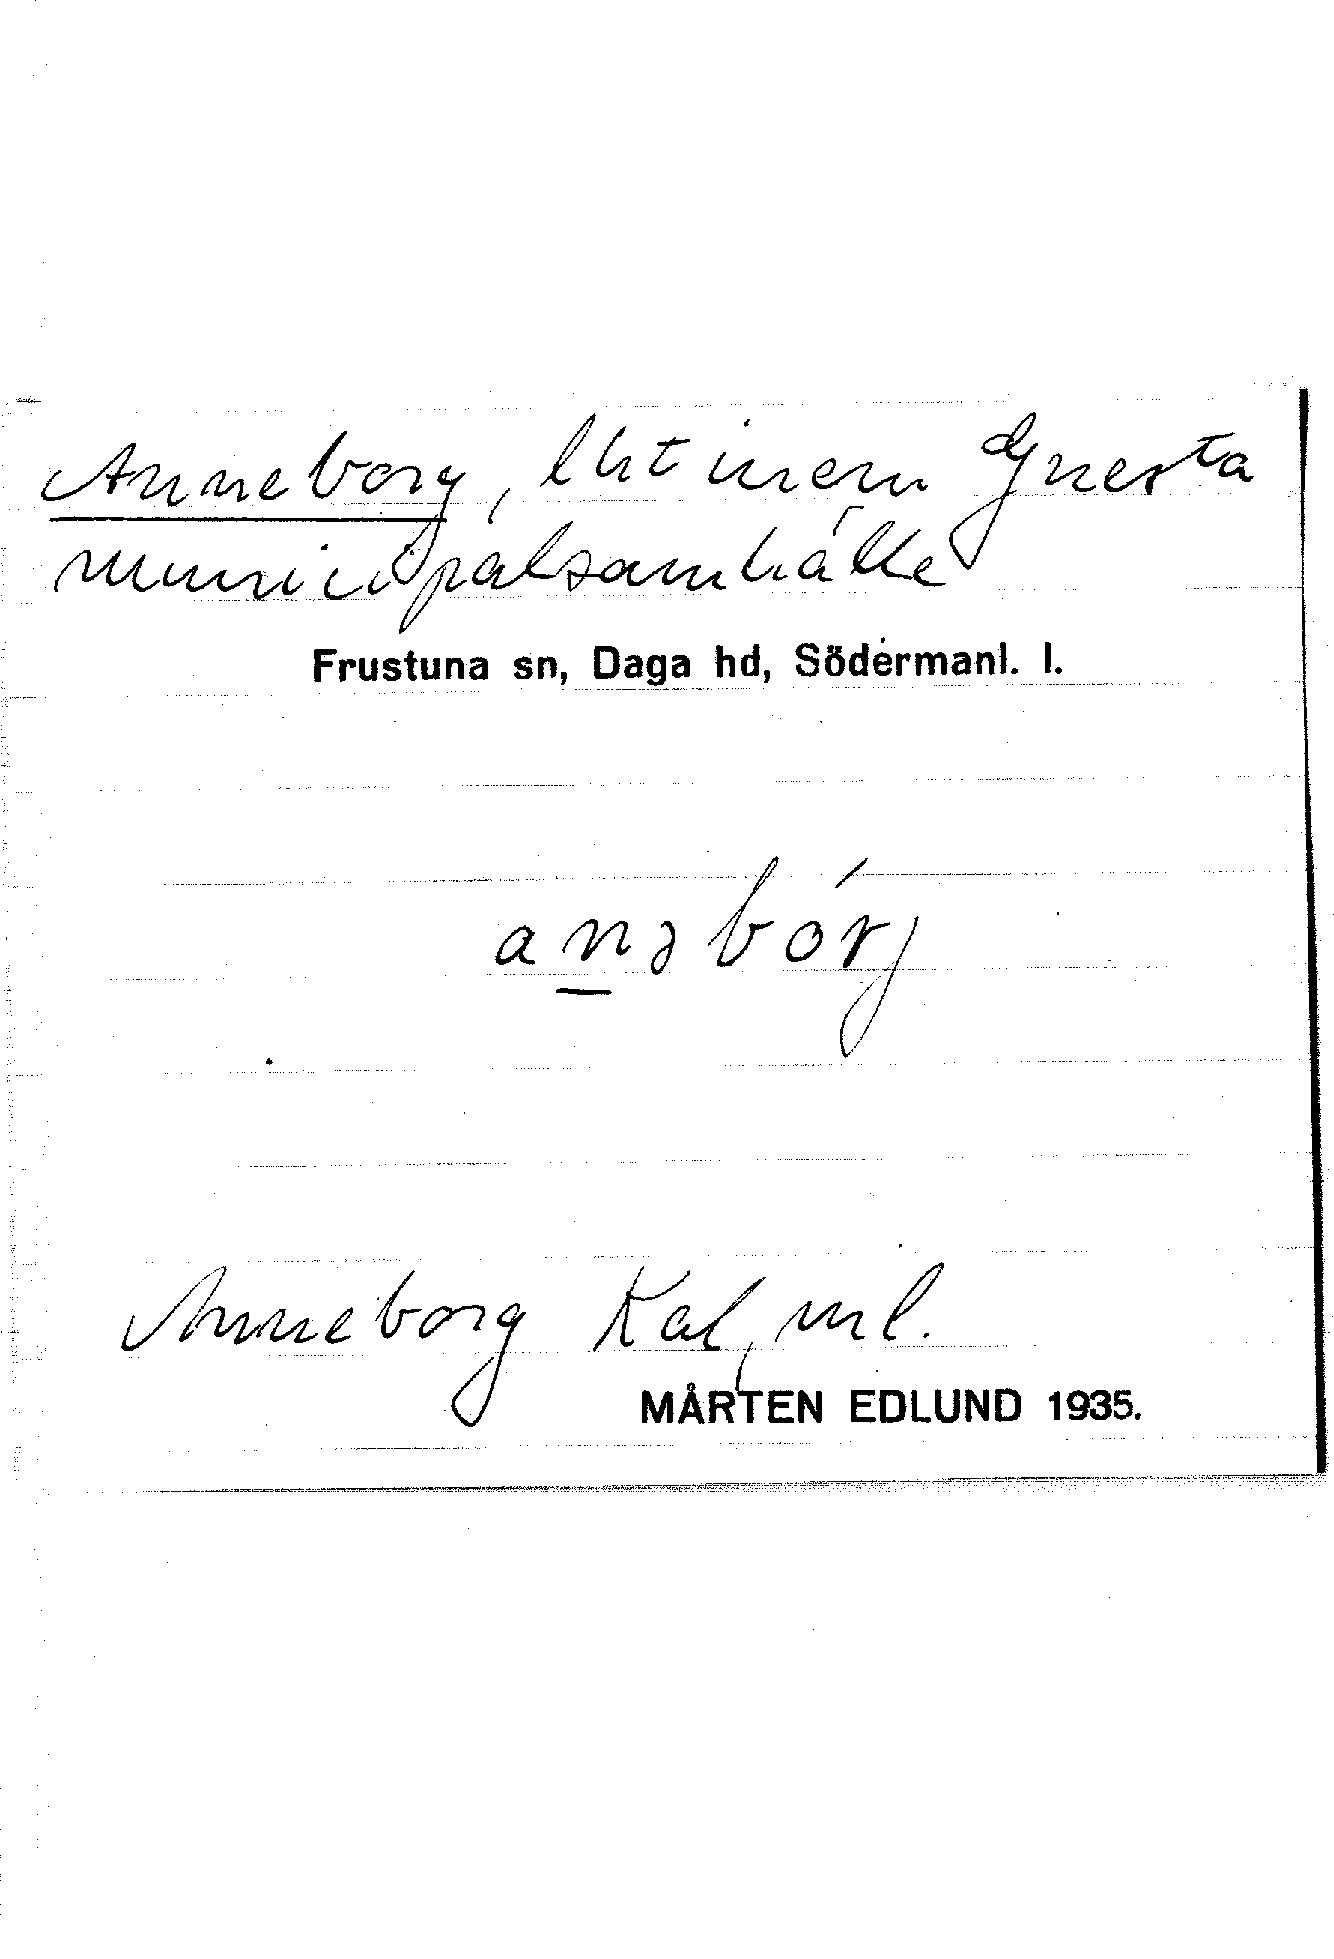 Anneborg, lht inem Gnesta
municipalsamhälle
Frustuna sn, Daga hd, Södermanl. l.
anəbórj
Anneborg Kal, ml.
MÅRTEN EDLUND 1935.